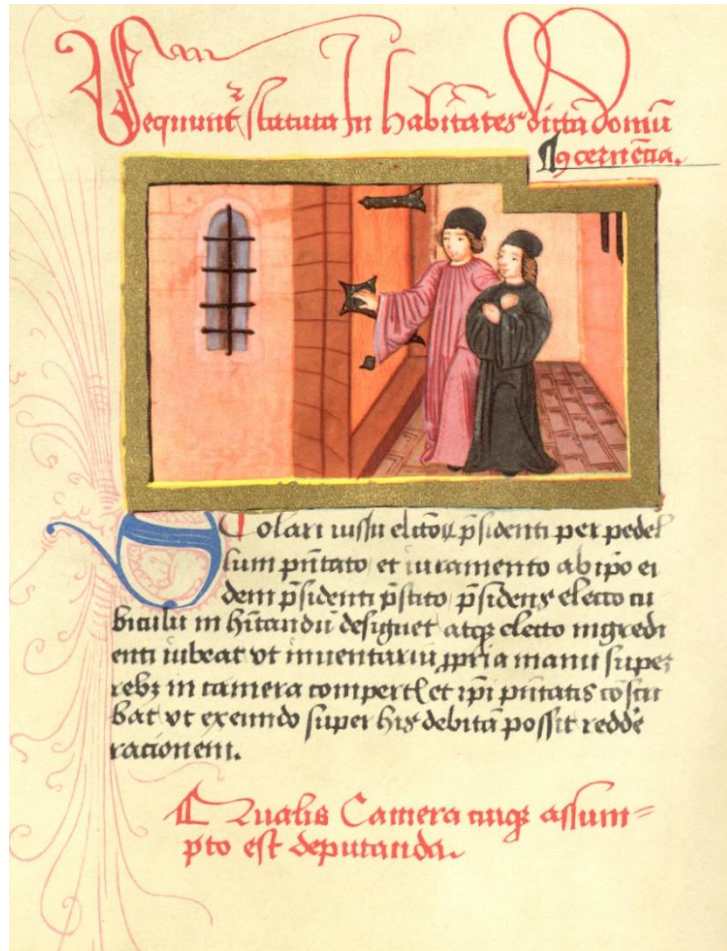 Sequunt᷑ statuta Inhabitātes dictā domū
¶ ꝯcernēcia.
Scolari iussu electoꝝ p̄sidenti per pedel
lum pn̄tato et iuramento ab ip̄o ei
dem p̄sidenti p̄stito p̄sidens electo cu
biculū inhītandū designet atqꝫ electo ingredi
enti iubeat vt inuentariū ꝓpria manu super
rebꝫ in camera compertꝭ et ip̄i pn̄tatis cōscri
bat vt exeundo super his debitā possit reddē
racionem.
¶ Qualis Camera cuiqꝫ assum=
pto est deputanda.